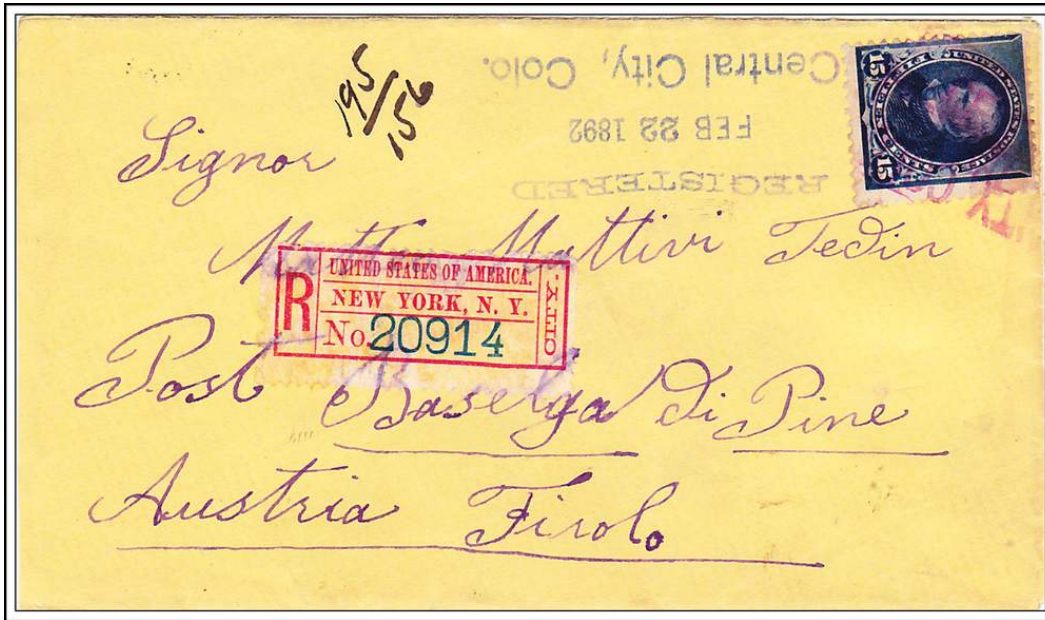 195/156
Central City, Colo.
FEB 22 1892
REGISTERED
UNITED STATES POSTAGE
15 15
TY CO
Signor
Matteo Mattivi Tedin
R
UNITED STATES OF AMERICA.
NEW YORK, N. Y.
No. 20914
CITY.
Post Baselga Di Pine
Austria Tirolo